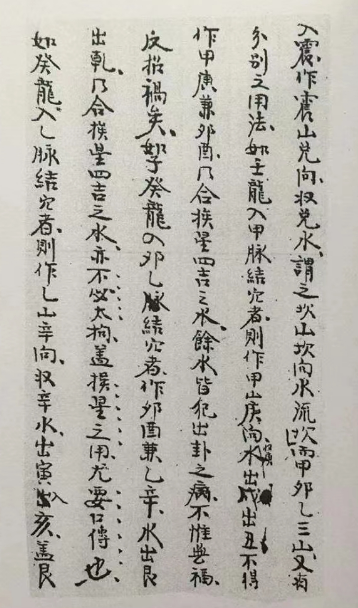 入震作震山兌向收兌水謂之坎山坎向水流坎而甲卯乙三山又有
分別之用法如壬龍入甲脉結穴者則作甲山庚向水出戌出丑不得
作甲庚兼卯酉乃合挨星四吉之水餘水皆犯出卦之病不惟無福
反招禍矣如子癸龍入卯乙脉結穴者作卯酉兼乙辛水出艮
出乾乃合挨星四吉之水亦不必太拘蓋挨星之用尤要口傳也
如癸龍入乙脉結穴者則作乙山辛向收辛水出寅出亥蓋艮